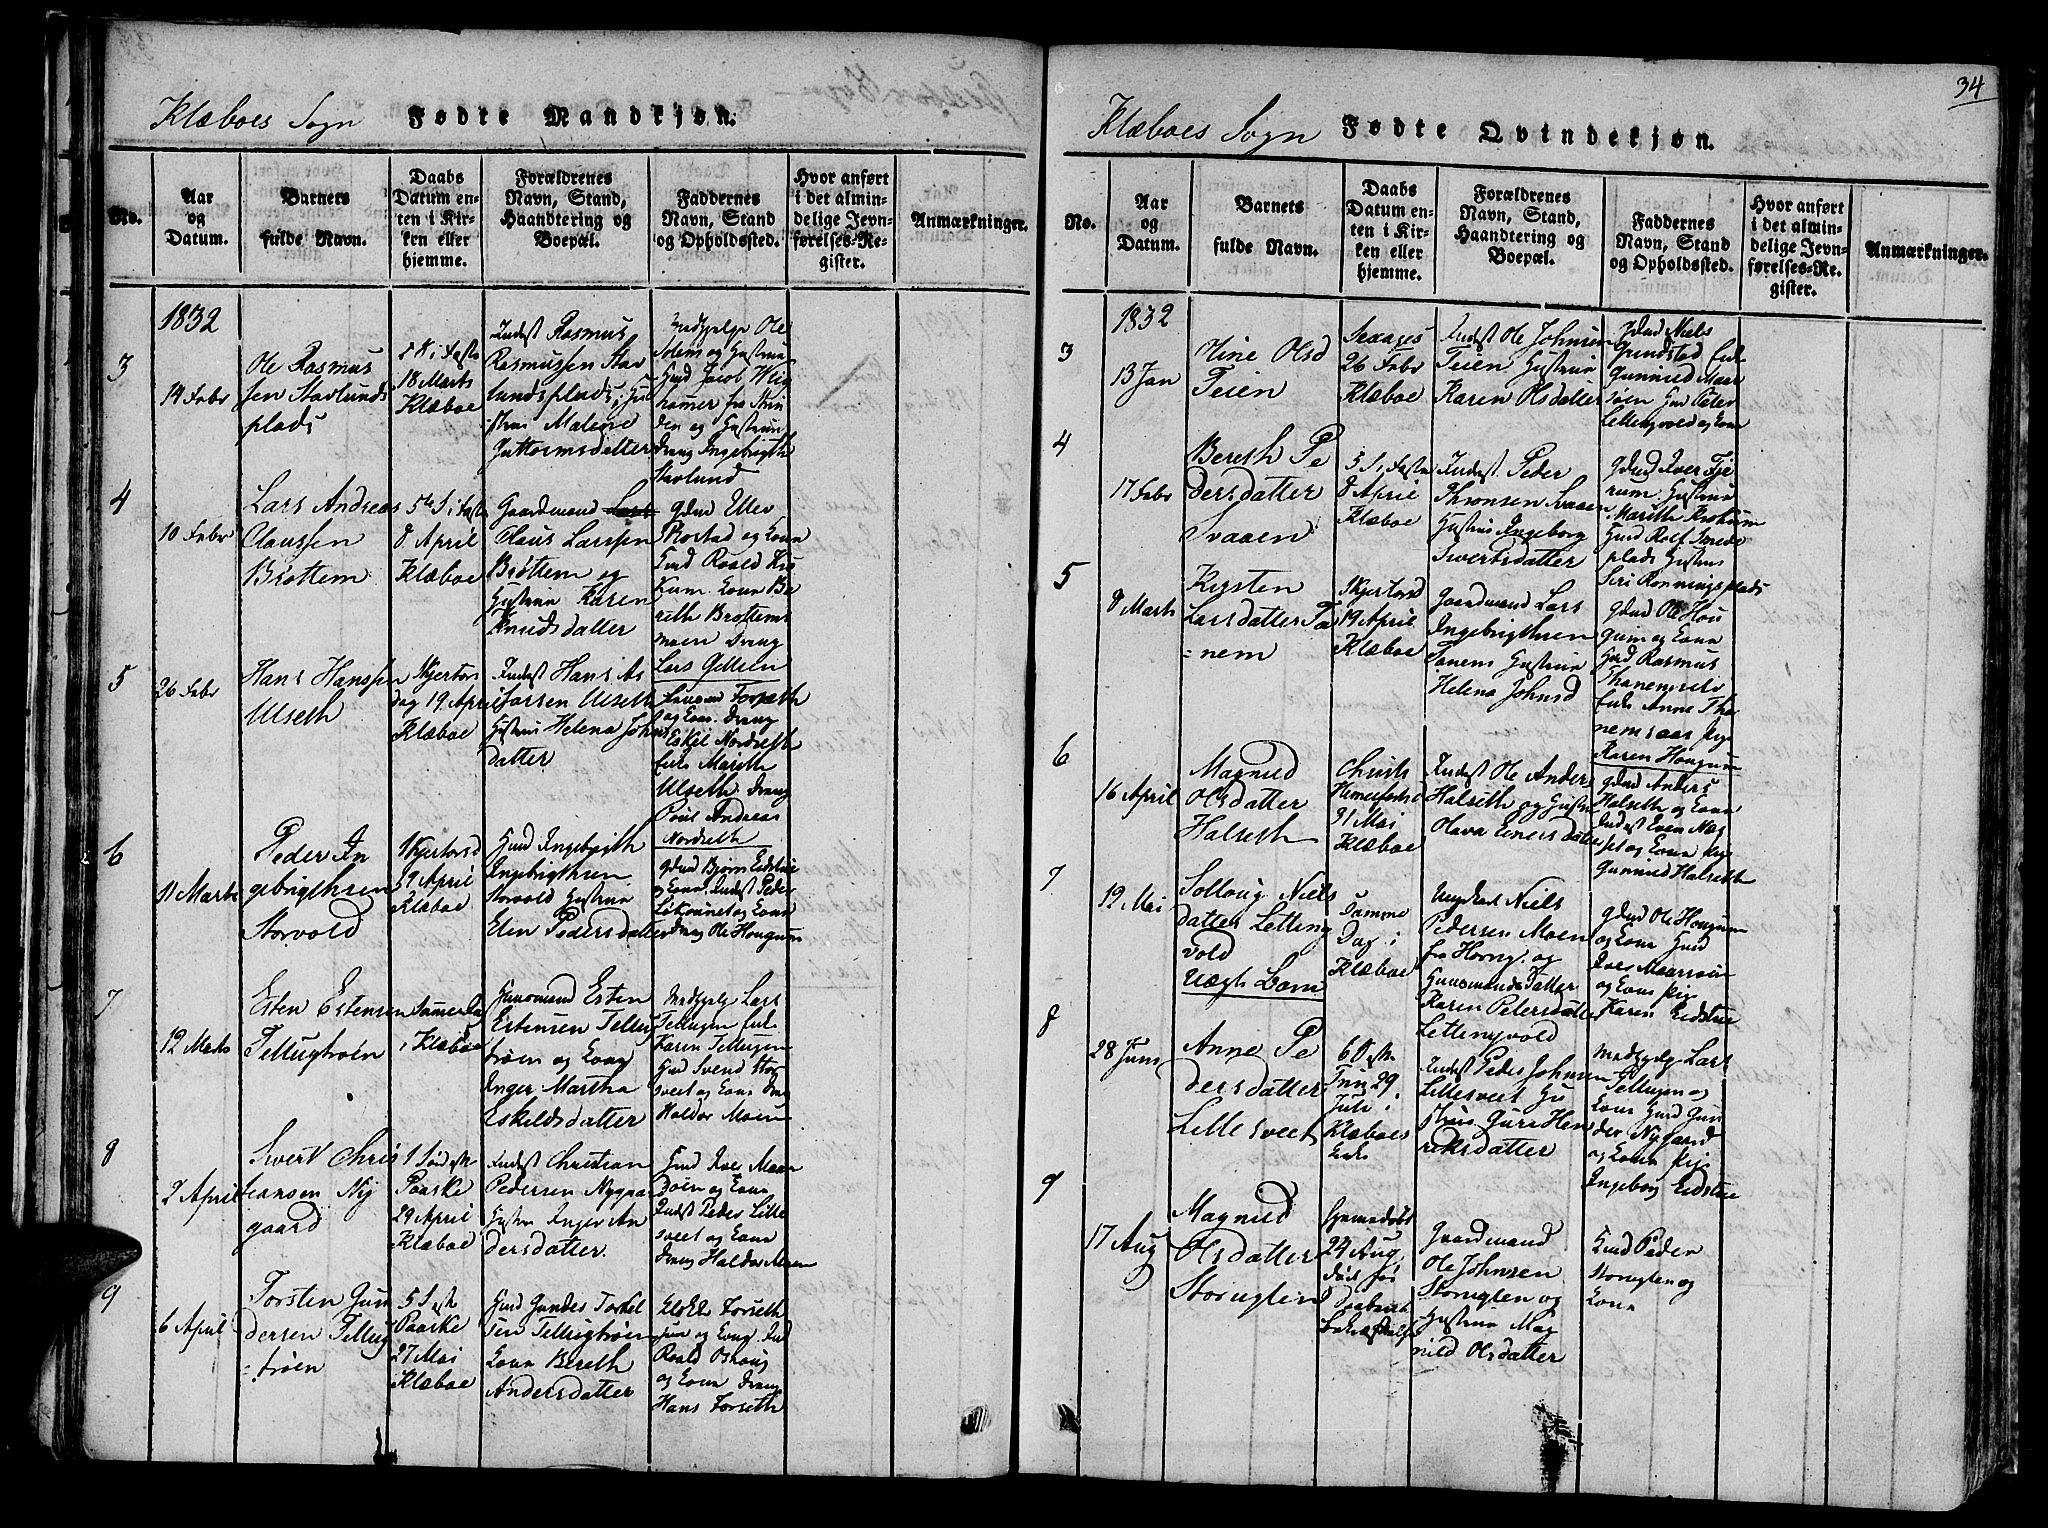 34
Klæboes Sogn Fødte Mandkjøn.
No.
Aar
og
Datum.
Barnets
fulde Navn.
Daabs
Datum en-
ten i Kir-
ken eller
hjemme.
Forældrenes
Navn, Stand,
Haandtering og
Boepæl.
Faddernes
Navn, Stand
og Opholdssted.
Hvor anført
i det almin-
delige Jevn-
førelses-Re-
gister.
Anmærkninger.
1832
3
14 Febr
Ole Rasmus
sen Stavlunds
plads
5 S i Faste
18 Marts
Klæboe
Indst Rasmus
Rasmussen Stav
lundsplads, Hu
strue
Guttormsdatter
Ole
Solem og Hustrue
Gmd Jacob
fra Strin
den og Hustrue
Dreng Ingebrigth
Stavlund
4
10 Febr
Lars Andreas
Claussen
Brøttem
5te S i Faste
8 April
Klæboe
Gaardmand Lars
Claus Larssen
Brøttem og
Hustrue Karen
Knudsdatter
Gdmd Ellev
Rostad og Kone
Gmd Roald
Kone Be
reth Brøttems
moen Dreng
Lars Gellein
5
26 Febr
Hans Hanssen
Ulseth
Skjertors
dag 19 April
Klæboe
Indst Hans As
larsen Ulseth
Hustrue Helena Johns
datter
Forseth
og Kone Dreng
Eskil Nordseth
Enke Mareth
Ulseth Dreng
Poul Andreas
Nordseth
6
11 Marts
Peder In
gebrigthsen
Storvold
Skjertorsd
19 April
Klæboe
Gmd Ingebrigth
Ingebrigthsen
Storvold Hustrue
Elen Pedersdatter
Gdmd Bjørn Eidstue
og Kone, Indst Peder
og Kone
Dreng Ole Hougum
7
12 Marts
Esten Estensen
Tellugtrøen
Samme Dag
i Klæboe
Huusmand Esten
Estensen Tellug
trøen og Kone
Inger Martha
Eskildsdatter
Lars
Tellugen Enke
Karen Tellugen
Gmd Svend Stor
sveet og Kone Dreng
Haldor Moen
8
2 April
Sivert Chris
tiansen Ny
gaard
1 Sønd efter
Paaske
29 April
Klæboe
Indst Christian
Pedersen Nygaa
Hustrue Inger An
dersdatter
Gmd Iver Moen
og Kone
Indst Peder Lille
sveet og Kone
Dreng Haldor Moen
9
6 April
Torsten Gun
dersen Tellug
=trøen
5 S efter
Paaske
27 Mai
Klæboe
Gmd Gunder Torkel
sen Tellugtrøen
Kone Bereth
Andersdatter
Forseth
og Kone, Ind
Roald Oshoug
og Kone Dreng
Hans Forseth
Klæboes Sogn Fødte Qvindekjøn.
No.
Aar
og
Datum.
Barnets
fulde Navn.
Daabs
Datum en-
ten i Kir-
ken eller
hjemme.
Forældrenes
Navn, Stand,
Haandtering og
Boepæl.
Faddernes
Navn, Stand
og Opholdssted.
Hvor anført
i det almin-
delige Jevn-
førelses-Re-
gister.
Anmærkninger.
1832
3
13 Jan
Stine Olsd
Teien
Sexages
26 Febr
Klæboe
Indst Ole Johnsen
Teien Hustrue
Karen Olsdatter
Gdmd Niels
Grindstad Enke
Gunnild
Gmd Peter
Lettingvold og Kone
4
17 Febr
Bereth Pe
dersdatter
Svaaen
5 S i Faste
8 April
Klæboe
Indst Peder
Thronsen Svaaen
Hustrue Ingeborg
Sivertsdatter
Gdmd Iver Tje
rum Hustrue
Mareth
Gmd Rolf
plads Hustrue
Siri Rønningsplads
5
8 Marts
Kirsten
Larsdatter Ta
=nem
Skjertorsd
19 April
Klæboe
Gaardmand Lars
Ingebrigthsen
Tanem Hustrue
Helena Johnsd
Gdmd Ole Hou
gum og Kone
Gmd Rasmus
Enke Anne Tha
nemsaas Pige
Karen Hougum
6
16 April
Magnild
Olsdatter
Halseth
Christi
Himmelfartsd
31 Mai
Klæboe
Indst Ole Anders
Halseth og Hustrue
Olava Einersdatter
Gdmd Anders
Halseth og Kone
Indst Even Næs
set og Kone Pige
Gunnild Halseth
7
19 Mai
Sollaug Niels
datter Letting
vold
Uægte Barn
Samme
Dag i
Klæboe
Ungkarl Niels
Pedersen Moen
fra Horng. og
Huusmands Datter
Karen Petersdatter
Lettingvold
Gdmd Ole Hougum
og Kone Gmd
Iver
og Kone Pige
Karen Eidstue
8
28 Juni
Anne Pe
dersdatter
Lillesveet
6 S efter
Trin 29
Juli i
Klæboes
Kirke
Indst Peder Johnsen
Lillesveet Hu
strue Guri Hen
riksdatter
Lars
Tellugen og
Kone Gmd Gun
der Nygaard
og Kone Pige
Ingeborg Eidstue
9
17 Aug
Magnild
Olsdatter
Storuglen
Hjemmedøbt
24 Aug.
død før
Gaardmand
Ole Johnsen
Storuglen og
Hustrue Mag
nild Olsdatter
Gmd Peder
Storuglen og
Kone